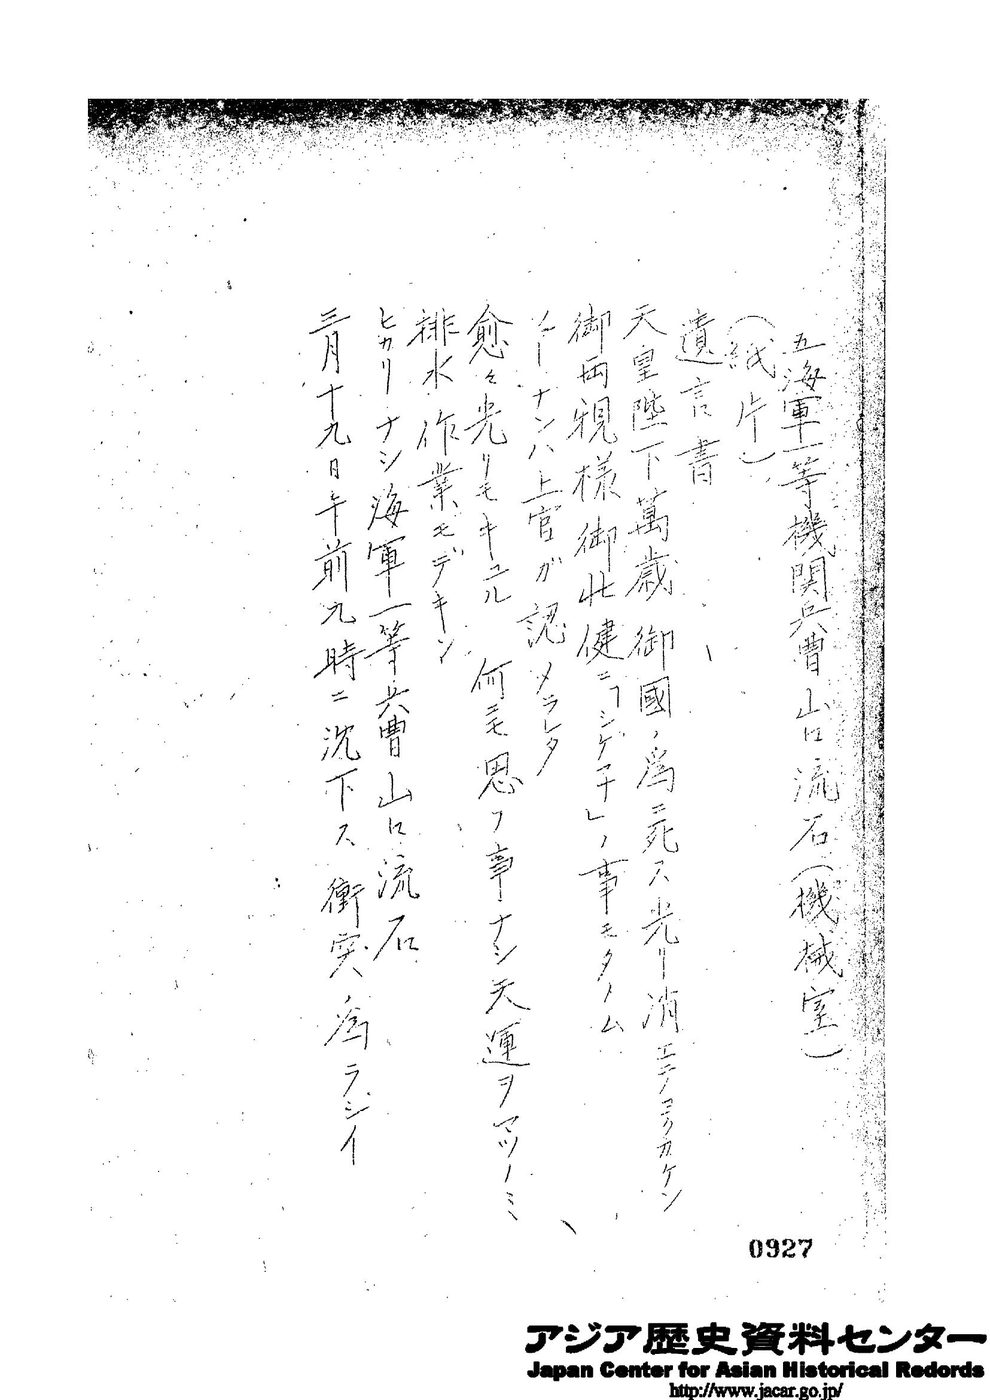 五海軍一等機関兵曹山口流石(機械室)
(紙片)
遺言書
天皇陛下萬歳御國ノ為ニ死ス光リ消エテノコリカケン
御両親様御壮健ニ「シゲ子」ノ事モタノム
ナンハ上官ガ認メラレタ
愈々光リモキユル 何モ思フ事ナシ天運ヲマツノミ
排水作業モデキン
ヒカリナシ海軍一等兵曹山口流石
三月十九日午前九時ニ沈下ス衝突ノ為ラシイ
0927
アジア歴史資料センター
Japan Center for Asian Historical Redords
http://www.jacar.go.jp/